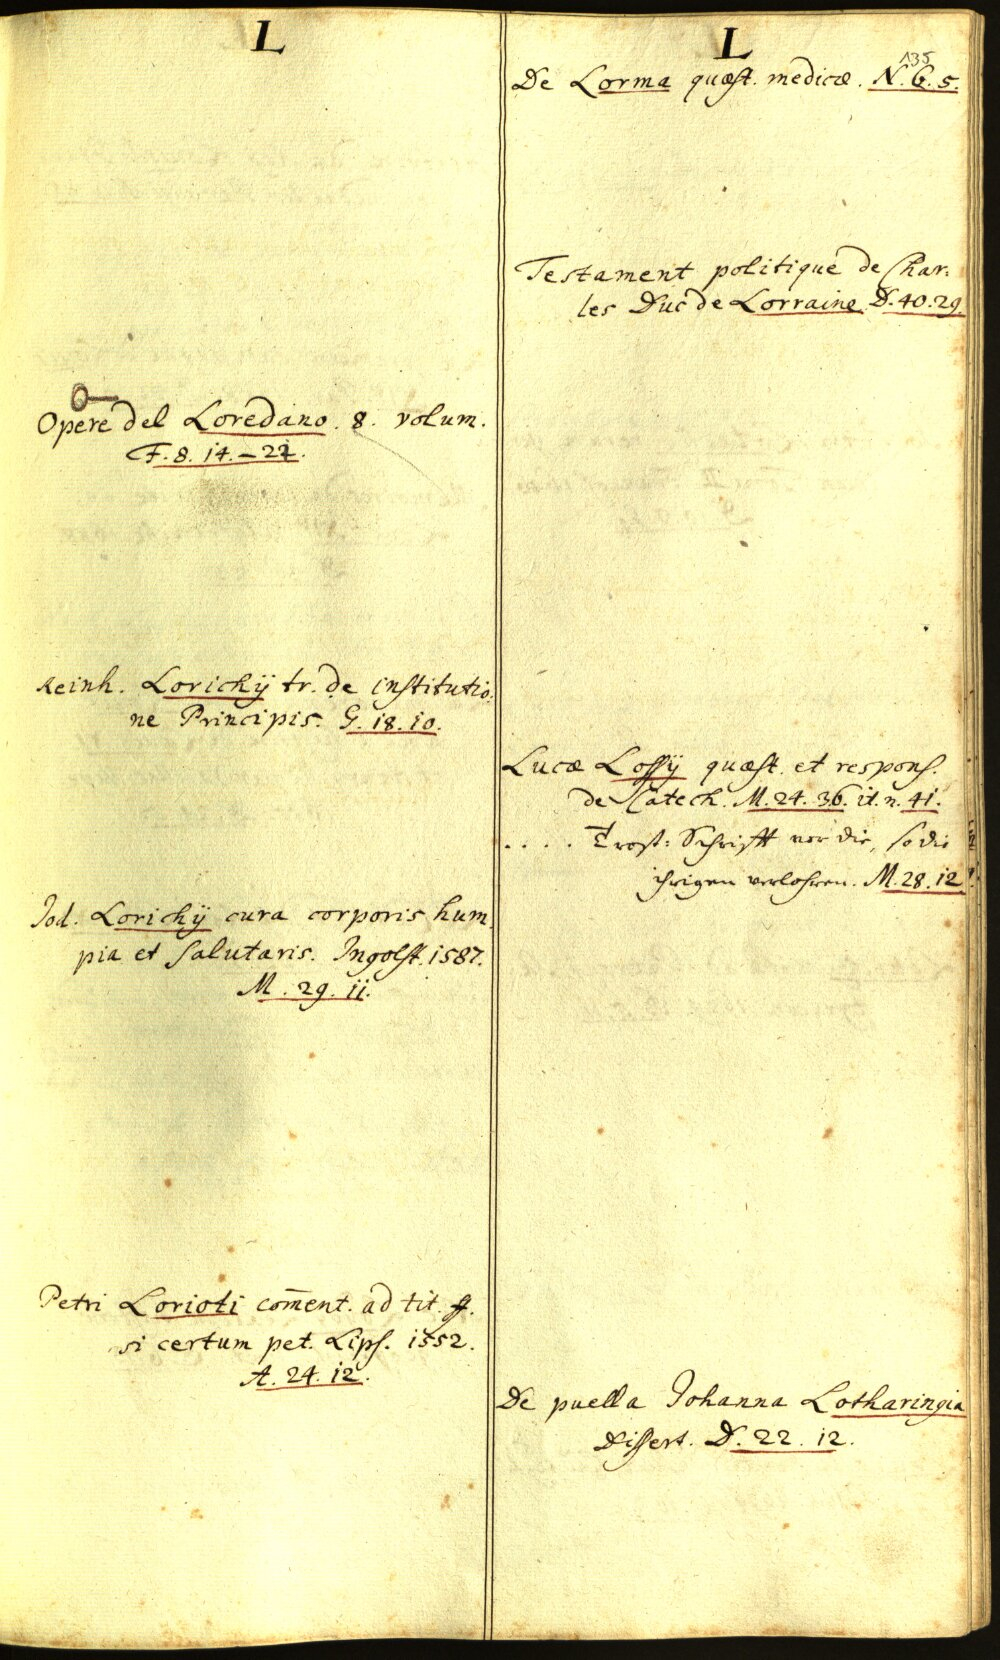 L
Opere del Loredano. 8. volum.
F. 8. 14. – 22.
Reinh. Lorichij tr. de institutio-
ne Principis. G. 18. 10.
Jod. Lorichij cura corporis hum.
pia et salutaris. Ingolst. 1587.
M. 29. 11.
Petri Lorioti com̄ent. ad tit. ff.
si certum pet. Lips. 1552.
A. 24. 12.
L
135
De Lorma quæst. medicæ. N. 6. 5.
Testament politique de Char-
les Duc de Lorraine D. 40. 29.
Lucæ Lossij quæst. et respons.
de Catech. M. 24. 36. it. n. 41.
. . . . Trost: Schrifft vor die, so die
ihrigen verlohren. M. 28. 12
De puella Johanna Lotharingia
Dissert. D. 22. 12.